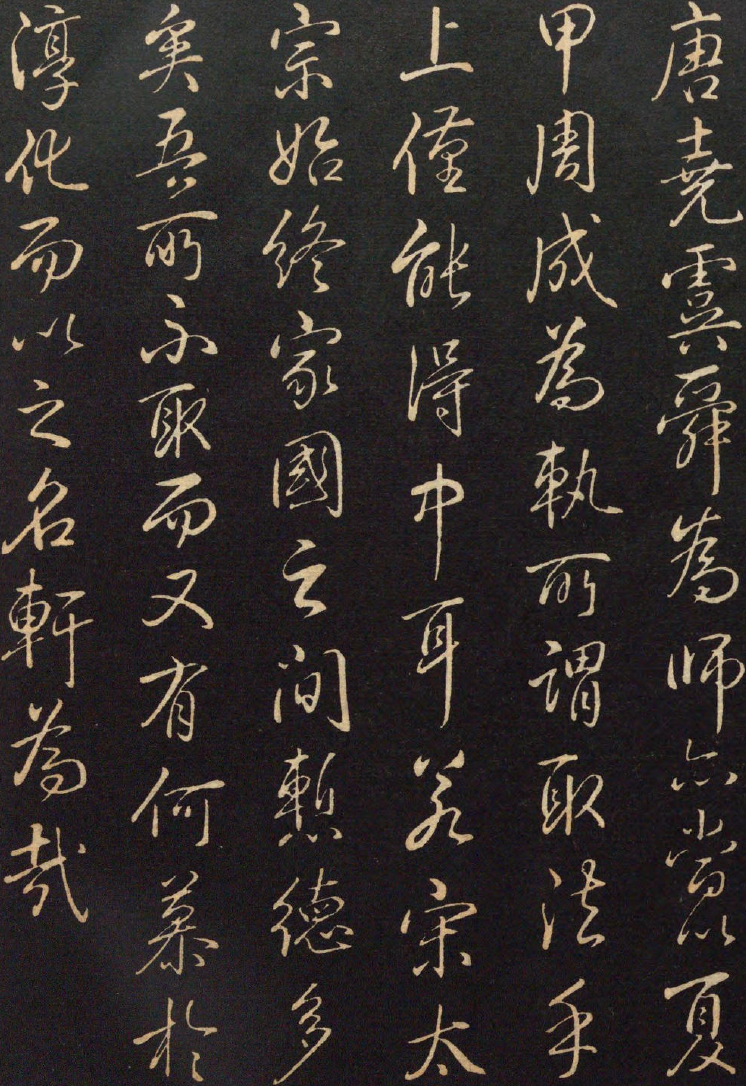 唐堯虞舜為师亦當以夏
甲周成為軌所謂取法乎
上僅能得中耳若宋太
宗始終家國之間慙德多
矣吾所不取而又有何慕於
淳化而以之名軒為哉